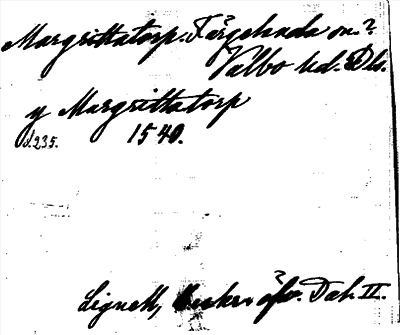 Margrittatorp. Färgelanda sn.?
Valbo hd. Dls.
y Margrittatorp
d.235. 1540.
Lignell, Beskr. öfv. Dal. II.